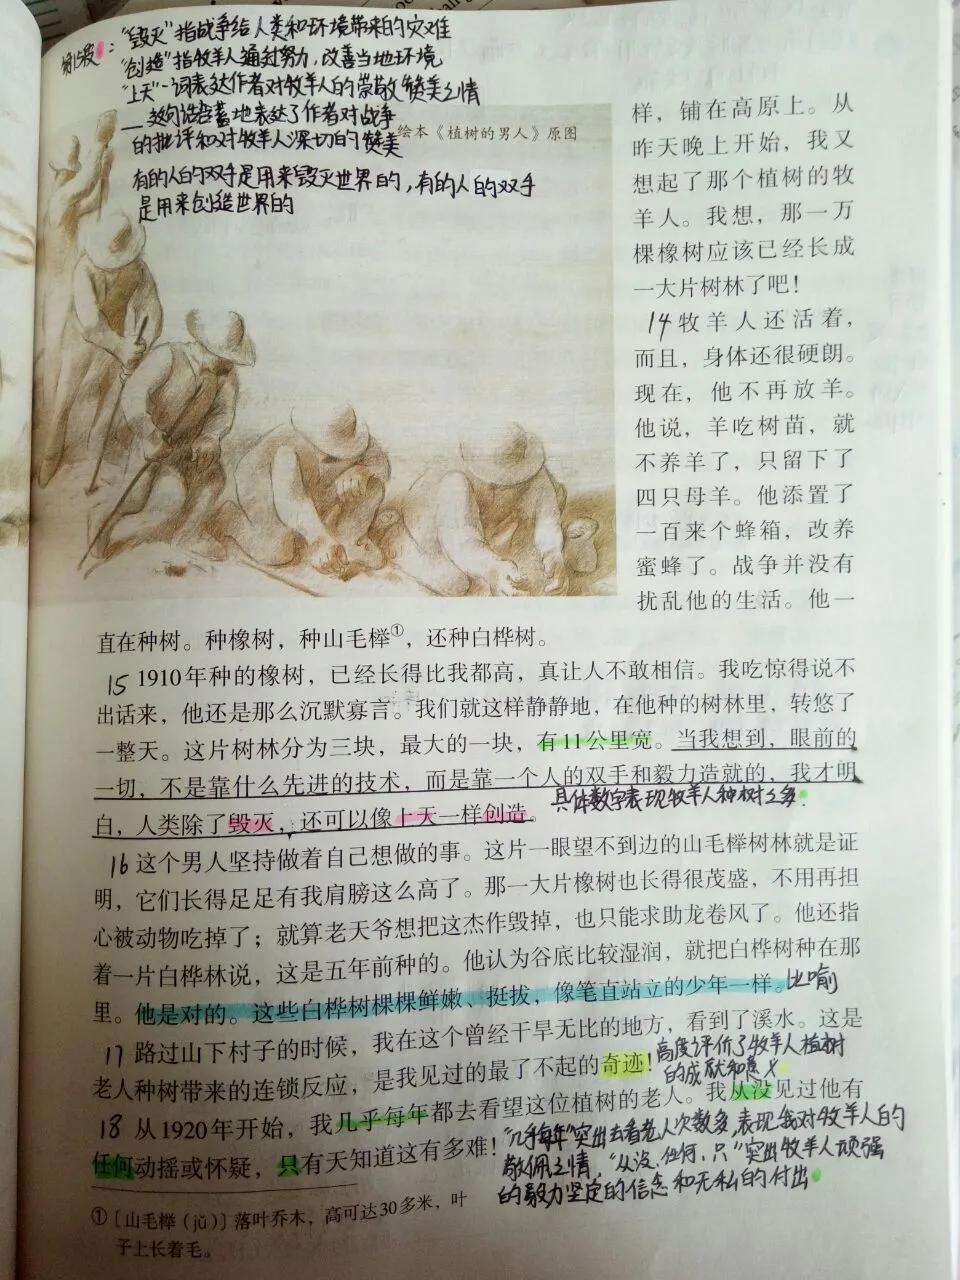 ：“毁灭”指战争给人类和环境带来的灾难
“创造”指牧羊人通过努力，改善当地环境
“上天”一词表达作者对牧羊人的崇敬赞美之情
这句话含蓄地表达了作者对战争
的批评和对牧羊人深切的赞美
有的人的双手是用来毁灭世界的，有的人的双手
是用来创造世界的
绘本《植树的男人》原图
样，铺在高原上。从
昨天晚上开始，我又
想起了那个植树的牧
羊人。我想，那一万
棵橡树应该已经长成
一大片树林了吧！
14牧羊人还活着，
而且，身体还很硬朗。
现在，他不再放羊。
他说，羊吃树苗，就
不养羊了，只留下了
四只母羊。他添置了
一百来个蜂箱，改养
蜜蜂了。战争并没有
扰乱他的生活。他一
直在种树。种橡树，种山毛榉①，还种白桦树。
15 1910年种的橡树，已经长得比我都高，真让人不敢相信。我吃惊得说不
出话来，他还是那么沉默寡言。我们就这样静静地，在他种的树林里，转悠了
一整天。这片树林分为三块，最大的一块，有11公里宽。当我想到，眼前的
一切，不是靠什么先进的技术，而是靠一个人的双手和毅力造就的，我才明
白，人类除了毁灭，还可以像上天一样创造。 具体数字表现牧羊人种树之多
16 这个男人坚持做着自己想做的事。这片一眼望不到边的山毛榉树林就是证
明，它们长得足足有我肩膀这么高了。那一大片橡树也长得很茂盛，不用再担
心被动物吃掉了；就算老天爷想把这杰作毁掉，也只能求助龙卷风了。他还指
着一片白桦林说，这是五年前种的。他认为谷底比较湿润，就把白桦树种在那
里。他是对的。这些白桦树棵棵鲜嫩、挺拔，像笔直站立的少年一样。 比喻
17 路过山下村子的时候，我在这个曾经干旱无比的地方，看到了溪水。这是
老人种树带来的连锁反应，是我见过的最了不起的奇迹！
高度评价了牧羊人植树
的成就和意义
18 从1920年开始，我几乎每年都去看望这位植树的老人。我从没见过他有
任何动摇或怀疑，只有天知道这有多难！
“几乎每年”突出去看老人次数多，表现我对牧羊人的
敬佩之情，“从没、任何、只”突出牧羊人顽强
的毅力坚定的信念和无私的付出
①〔山毛榉（jǔ）〕落叶乔木，高可达30多米，叶
子上长着毛。